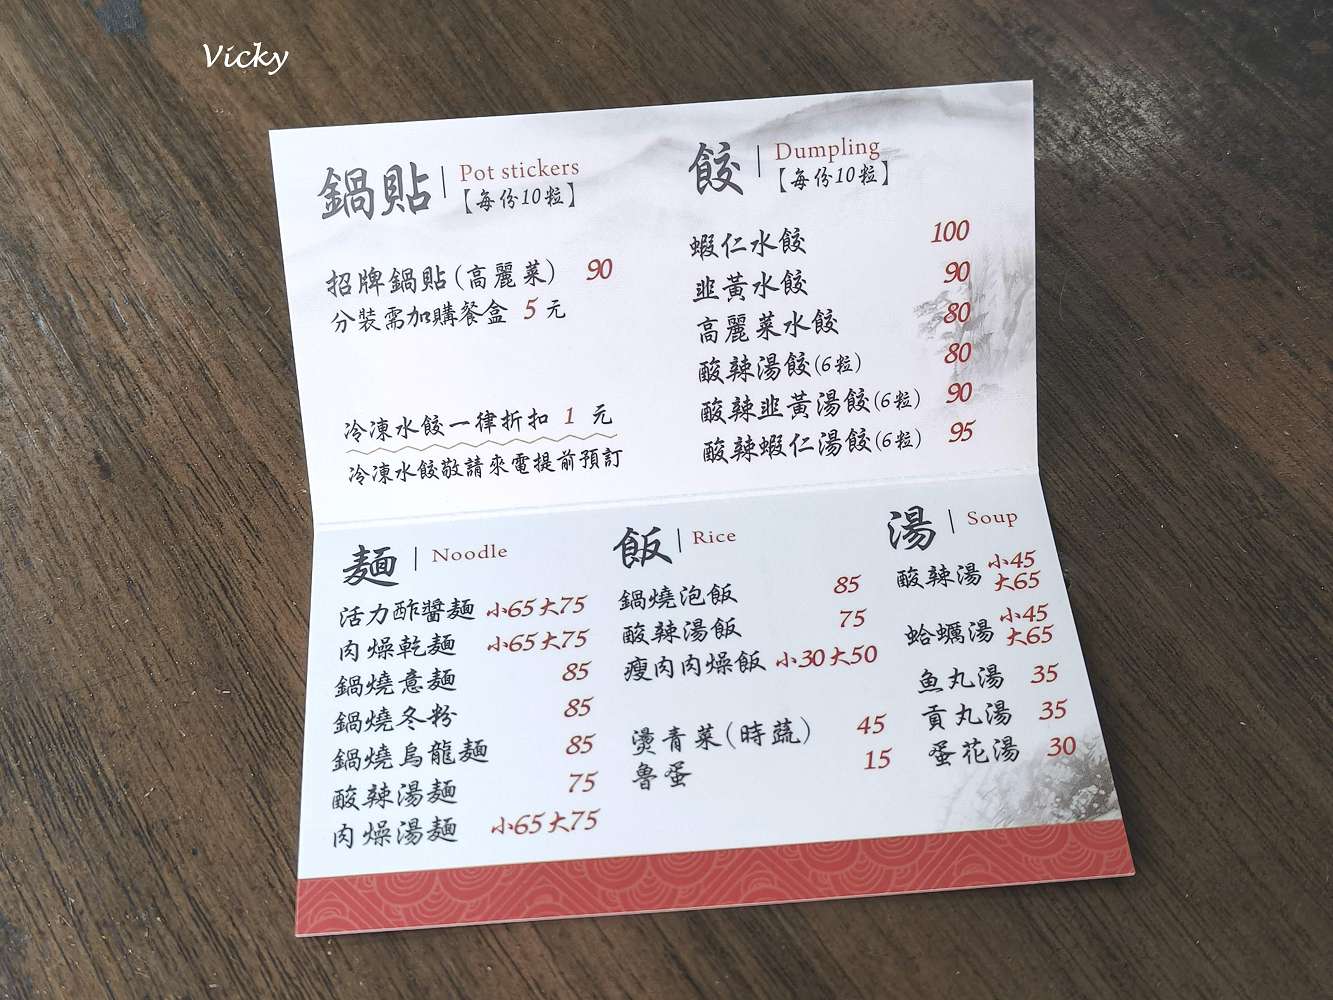 Vicky
鍋貼 Pot stickers
【每份10粒】
招牌鍋貼(高麗菜) 90
分裝需加購餐盒 5 元
冷凍水餃一律折扣 1 元
冷凍水餃敬請來電提前預訂
餃 Dumpling
【每份10粒】
蝦仁水餃 100
韭黃水餃 90
高麗菜水餃 80
酸辣湯餃(6粒) 80
酸辣韭黃湯餃(6粒) 90
酸辣蝦仁湯餃(6粒) 95
麵 Noodle
活力酢醬麵 小65大75
肉燥乾麵 小65大75
鍋燒意麵 85
鍋燒冬粉 85
鍋燒烏龍麵 85
酸辣湯麵 75
肉燥湯麵 小65大75
飯 Rice
鍋燒泡飯 85
酸辣湯飯 75
瘦肉肉燥飯 小30大50
燙青菜(時蔬) 45
魯蛋 15
湯 Soup
酸辣湯 小45
大65
蛤蠣湯 小45
大65
魚丸湯 35
貢丸湯 35
蛋花湯 30